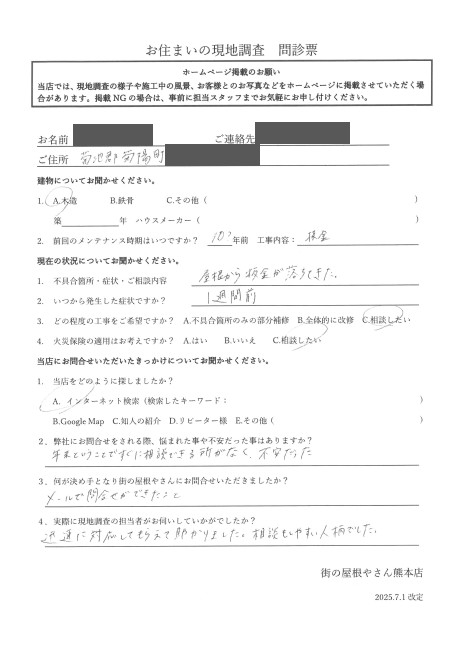 お住まいの現地調査　問診票
ホームページ掲載のお願い
当店では、現地調査の様子や施工中の風景、お客様とのお写真などをホームページに掲載させていただく場
合があります。掲載NGの場合は、事前に担当スタッフまでお気軽にお申し付けください。
お名前　ご連絡先
ご住所　菊池郡菊陽町
建物についてお聞かせください。
1. A.木造　B.鉄骨　C.その他（　）
築　年　ハウスメーカー（　）
2. 前回のメンテナンス時期はいつですか？　10?年前　工事内容：板金
現在の状況についてお聞かせください。
1. 不具合箇所・症状・ご相談内容　屋根から板金が落ちてきた。
2. いつから発生した症状ですか？　1週間前
3. どの程度の工事をご希望ですか？　A.不具合箇所のみの部分補修　B.全体的に改修　C.相談したい
4. 火災保険の適用はお考えですか？　A.はい　B.いいえ　C.相談したい
当店にお問合せいただいたきっかけについてお聞かせください。
1. 当店をどのように探しましたか？
A. インターネット検索（検索したキーワード：　）
B.Google Map　C.知人の紹介　D.リピーター様　E.その他（　）
2．弊社にお問合せをされる際、悩まれた事や不安だった事はありますか？
年末ということですぐに相談できる所がなく、不安だった
3．何が決め手となり街の屋根やさんにお問合せいただきましたか？
メールで問合せができたこと
4．実際に現地調査の担当者がお伺いしていかがでしたか？
迅速に対応してもらえて助かりました。相談もしやすい人柄でした。
街の屋根やさん熊本店
2025.7.1 改定